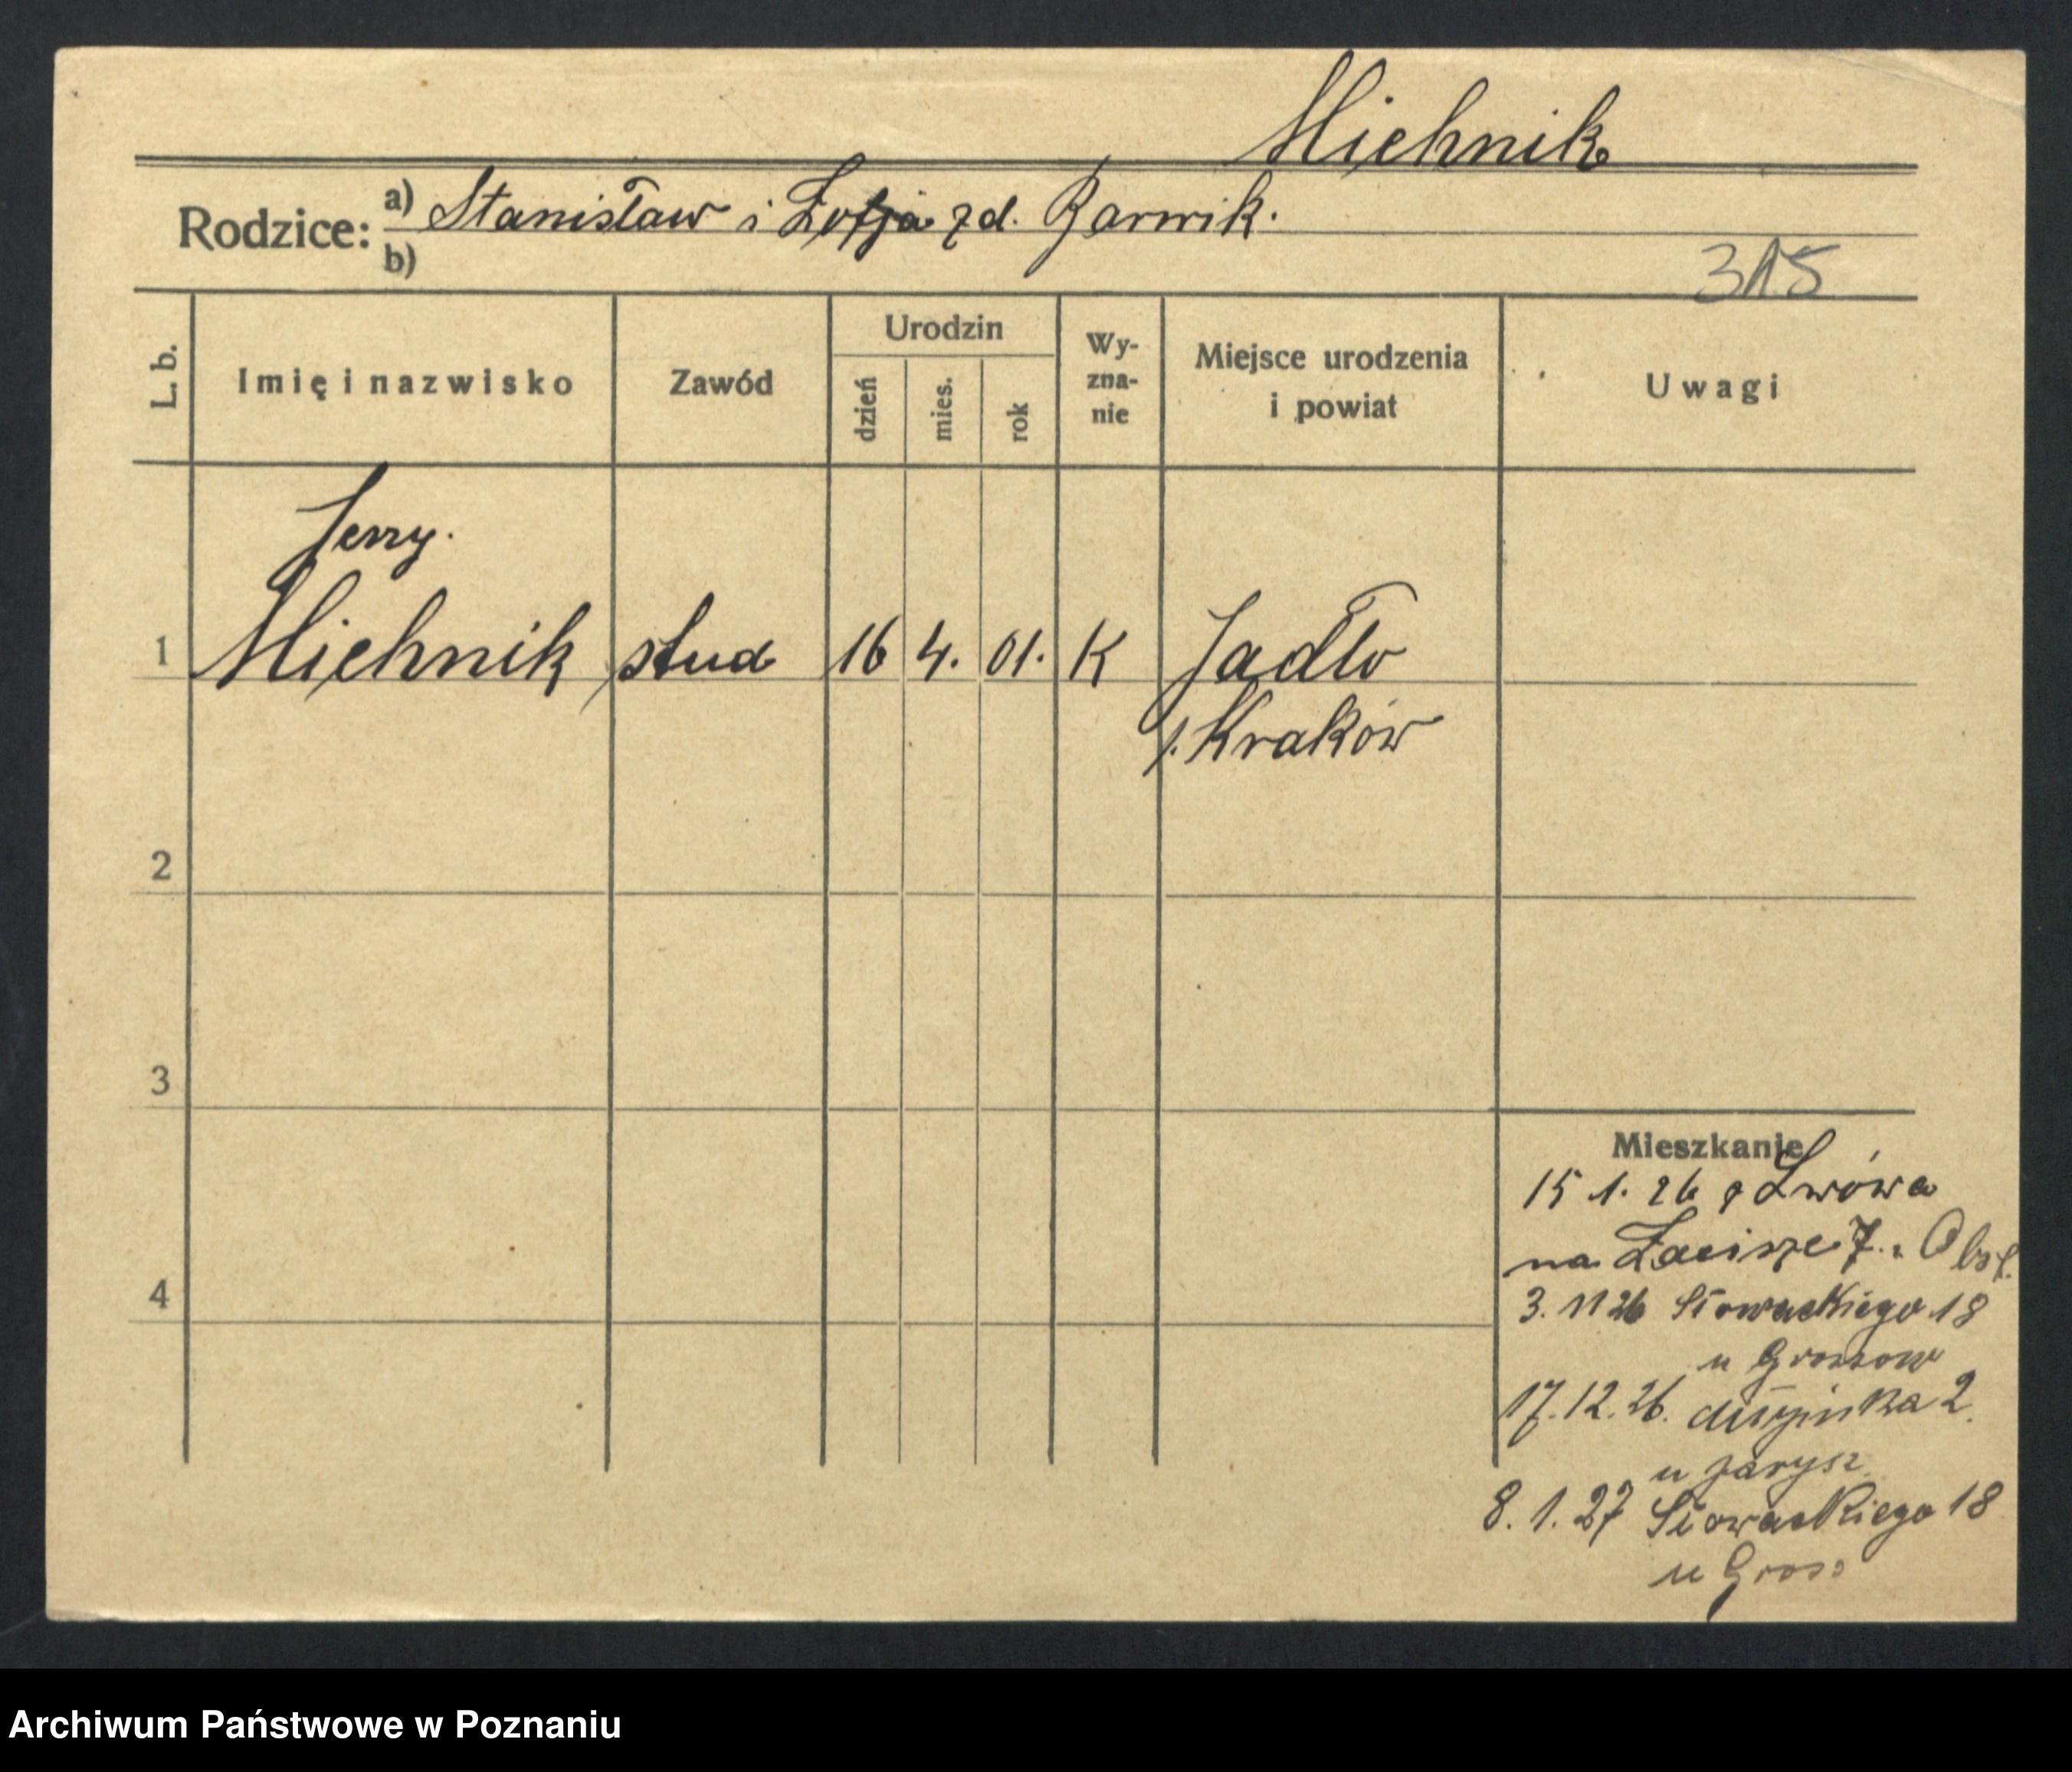 Michnik
Rodzice: a) Stanisław i Zofja zd. Barwik.
b)
315
L. b.
Imię i nazwisko
Zawód
Urodzin
dzień
mies.
rok
Wy-
zna-
nie
Miejsce urodzenia
i powiat
Uwagi
Jerzy.
1 Michnik stud 16 4. 01. K Jadło
p. Kraków
2
3
4
Mieszkanie
15 1. 26 z Lwówa
na Zacisze 7.
3. 11 26 Słowackiego 18
u
17.12.26. 2.
u
8. 1. 27 Słowackiego 18
u Gross
Archiwum Państwowe w Poznaniu